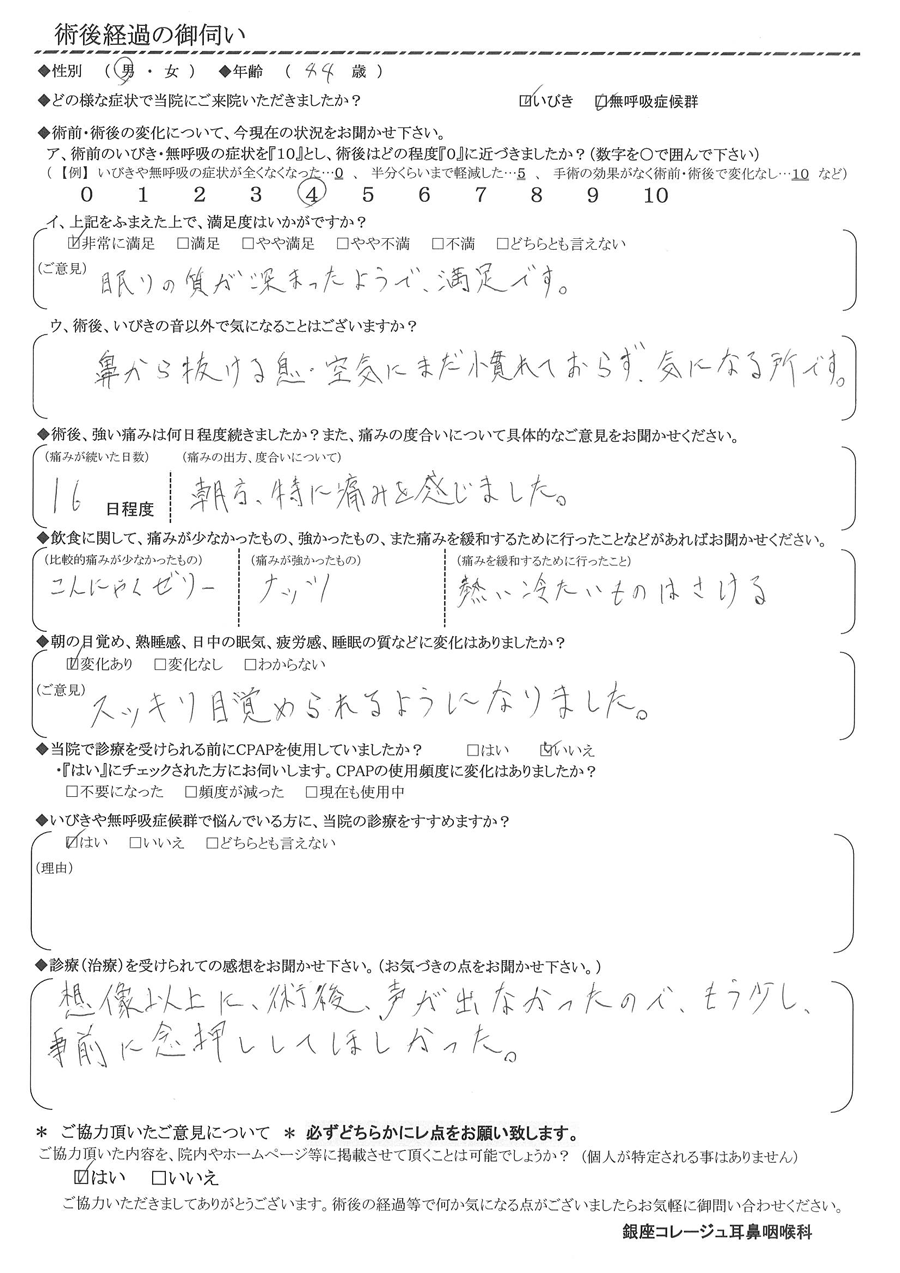 術後経過の御伺い
◆性別 （ 男 ・ 女 ） ◆年齢 （ 44 歳 ）
◆どの様な症状で当院にご来院いただきましたか？ ☑いびき ☑無呼吸症候群
◆術前・術後の変化について、今現在の状況をお聞かせ下さい。
ア、術前のいびき・無呼吸の症状を『10』とし、術後はどの程度『0』に近づきましたか？（数字を○で囲んで下さい）
（ 【例】 いびきや無呼吸の症状が全くなくなった…0 、 半分くらいまで軽減した…5 、 手術の効果がなく術前・術後で変化なし…10 など）
0 1 2 3 4 5 6 7 8 9 10
イ、上記をふまえた上で、満足度はいかがですか？
☑非常に満足 □満足 □やや満足 □やや不満 □不満 □どちらとも言えない
（ご意見） 眠りの質が深まったようで、満足です。
ウ、術後、いびきの音以外で気になることはございますか？
鼻から抜ける息・空気にまだ慣れておらず、気になる所です。
◆術後、強い痛みは何日程度続きましたか？また、痛みの度合いについて具体的なご意見をお聞かせください。
（痛みが続いた日数） （痛みの出方、度合いについて）
16 日程度 朝方、特に痛みを感じました。
◆飲食に関して、痛みが少なかったもの、強かったもの、また痛みを緩和するために行ったことなどがあればお聞かせください。
（比較的痛みが少なかったもの） （痛みが強かったもの） （痛みを緩和するために行ったこと）
こんにゃくゼリー ナッツ 熱い冷たいものはさける
◆朝の目覚め、熟睡感、日中の眠気、疲労感、睡眠の質などに変化はありましたか？
☑変化あり □変化なし □わからない
（ご意見） スッキリ目覚められるようになりました。
◆当院で診療を受けられる前にCPAPを使用していましたか？ □はい ☑いいえ
・『はい』にチェックされた方にお伺いします。CPAPの使用頻度に変化はありましたか？
□不要になった □頻度が減った □現在も使用中
◆いびきや無呼吸症候群で悩んでいる方に、当院の診療をすすめますか？
☑はい □いいえ □どちらとも言えない
（理由）
◆診療（治療）を受けられての感想をお聞かせ下さい。（お気づきの点をお聞かせ下さい。）
想像以上に、術後、声が出なかったので、もう少し、
事前に念押ししてほしかった。
＊ ご協力頂いたご意見について ＊ 必ずどちらかにレ点をお願い致します。
ご協力頂いた内容を、院内やホームページ等に掲載させて頂くことは可能でしょうか？ （個人が特定される事はありません）
☑はい □いいえ
ご協力いただきましてありがとうございます。術後の経過等で何か気になる点がございましたらお気軽に御問い合わせください。
銀座コレージュ耳鼻咽喉科